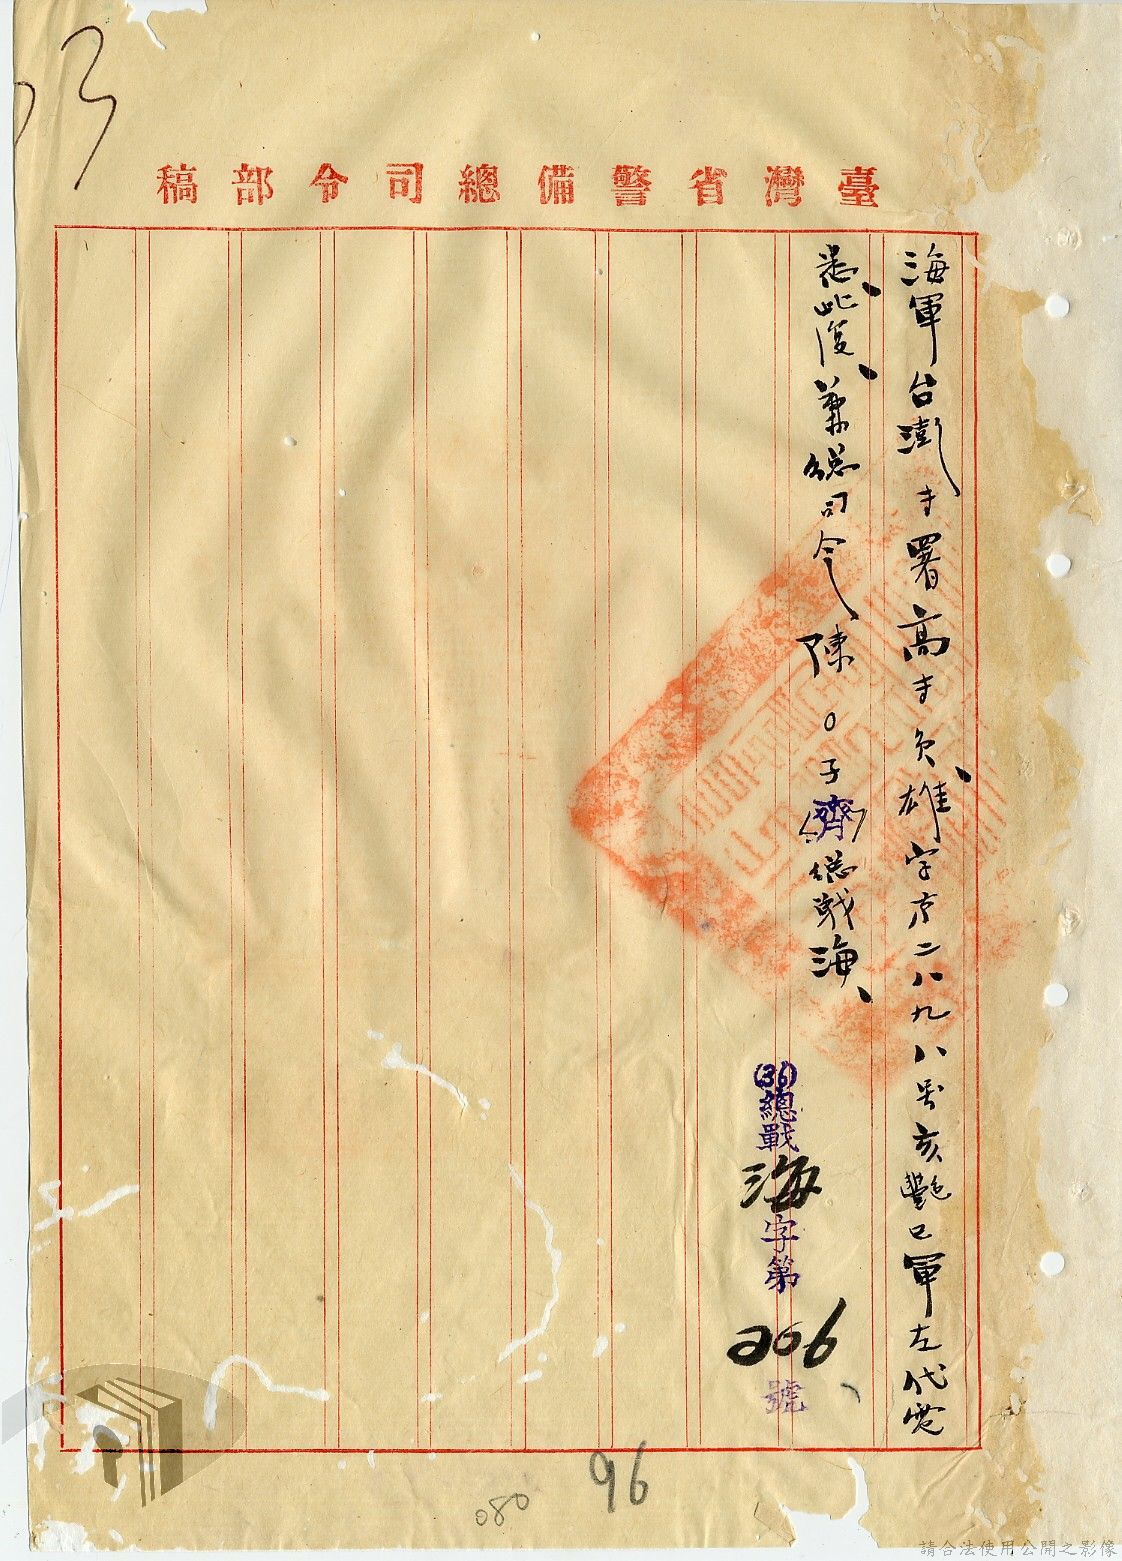 臺灣省警備總司令部稿
海軍台澎才署高才負、雄字方二八九八号亥艷巳軍左代電
悉、此復、兼總司令陳〇子(齊)總戰海、
(36)總戰海字第206號
96
080
請合法使用公開之影像